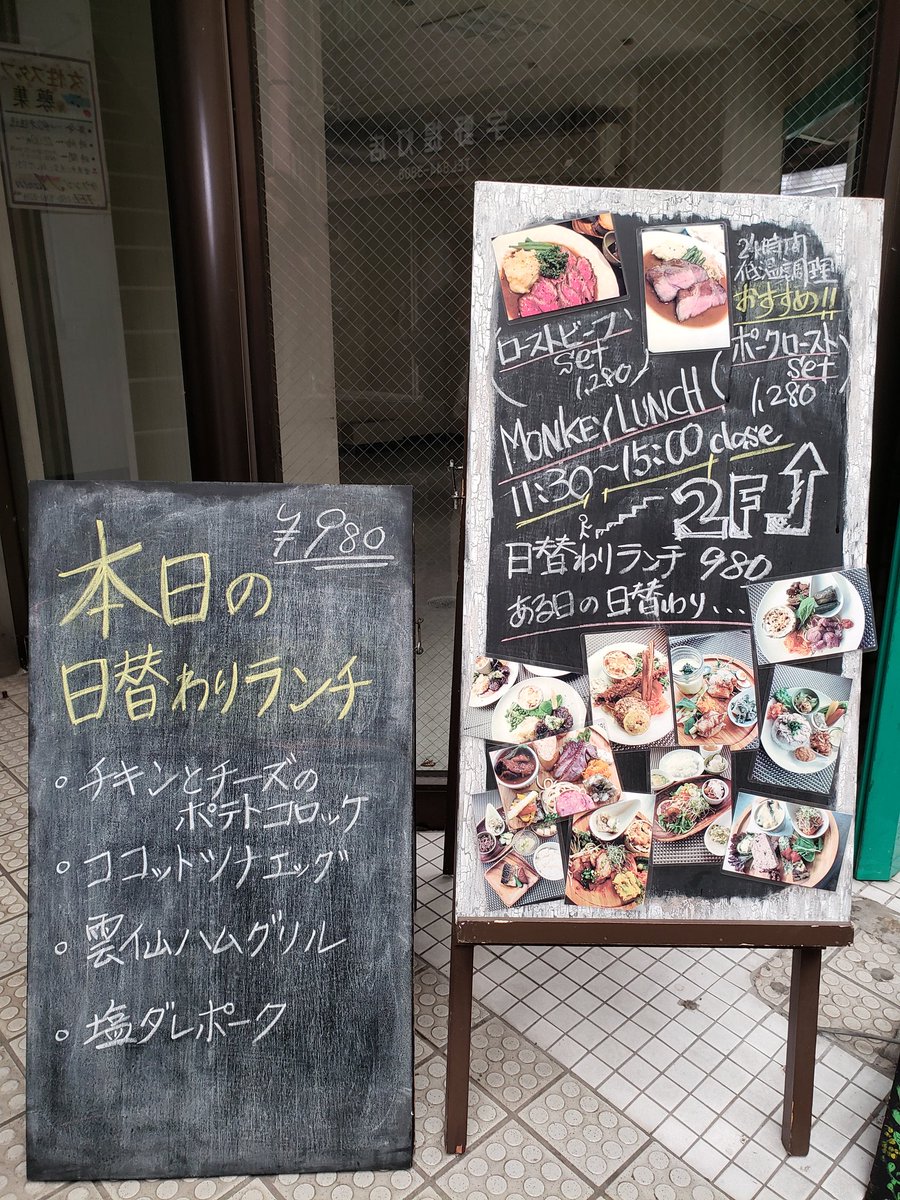 女性スタッフ
募集
¥980
本日の
日替わりランチ
・チキンとチーズの
ポテトコロッケ
・ココットツナエッグ
・雲仙ハムグリル
・塩ダレポーク
24時間
低温調理
おすすめ!!
(ローストビーフ
set
1,280)
(ポークロースト
set
1,280)
MONKEY LUNCH
11:30~15:00 close
2F
日替わりランチ 980
ある日の日替わり...